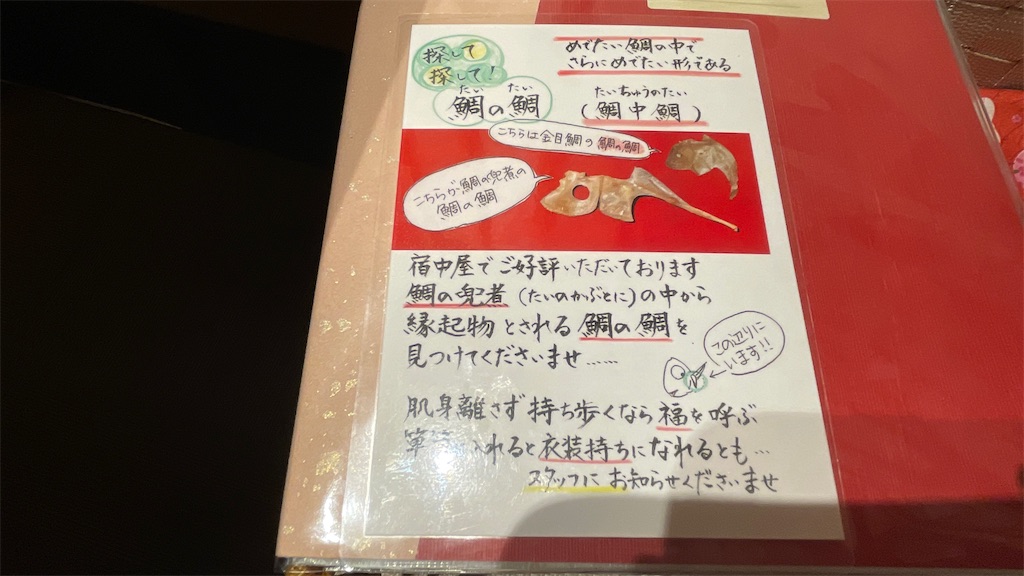 探して
探して！
めでたい鯛の中で
さらにめでたい形である
たい たい
鯛の鯛
たいちゅうのたい
(鯛中鯛)
こちらは金目鯛の鯛の鯛
こちらが鯛の兜煮の
鯛の鯛
宿中屋でご好評いただいております
鯛の兜煮(たいのかぶとに)の中から
縁起物とされる鯛の鯛を
見つけてくださいませ……
この辺りに
います!!
肌身離さず持ち歩くなら福を呼ぶ
れると衣装持ちになれるとも…
スタッフにお知らせくださいませ